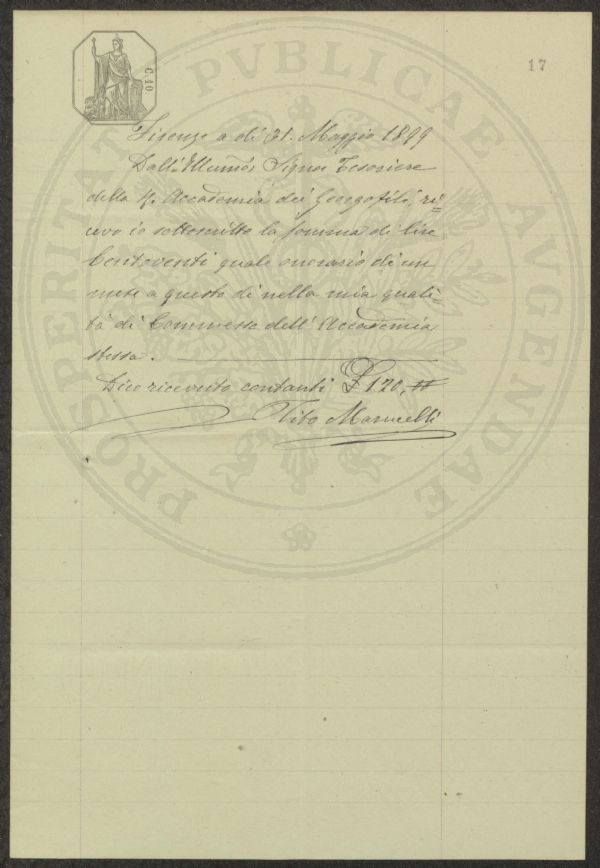 17
C. 10.
PROSPERITATI PVBLICAE AVGENDAE
Firenze a dì 31. Maggio 1899
Dall' Illumo Signor Tesoriere
della R. Accademia dei Georgofili, ri-
cevo io sottoscritto la somma di lire
Centoventi quale onorario di un
mese a questo dì nella mia quali-
tà di Commesso dell' Accademia
stessa.
Dico ricevuto contanti £ 120, #
Tito Marucelli